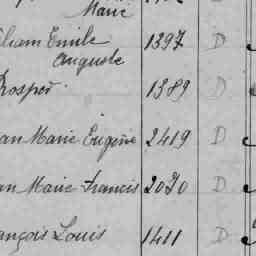 Marie
liam Emile 1397 D
Auguste
Prosper 1389 D
an Marie Eugène 2419 D
an Marie Francis 2070 D
ançois Louis 1411 D